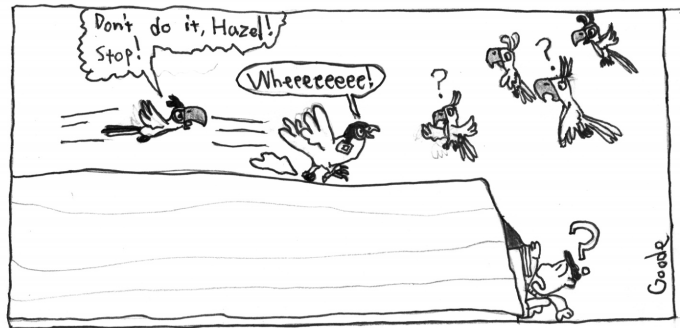 Don't do it, Hazel!
Stop!
Wheeeeeeee!
?
?
?
?
Goode